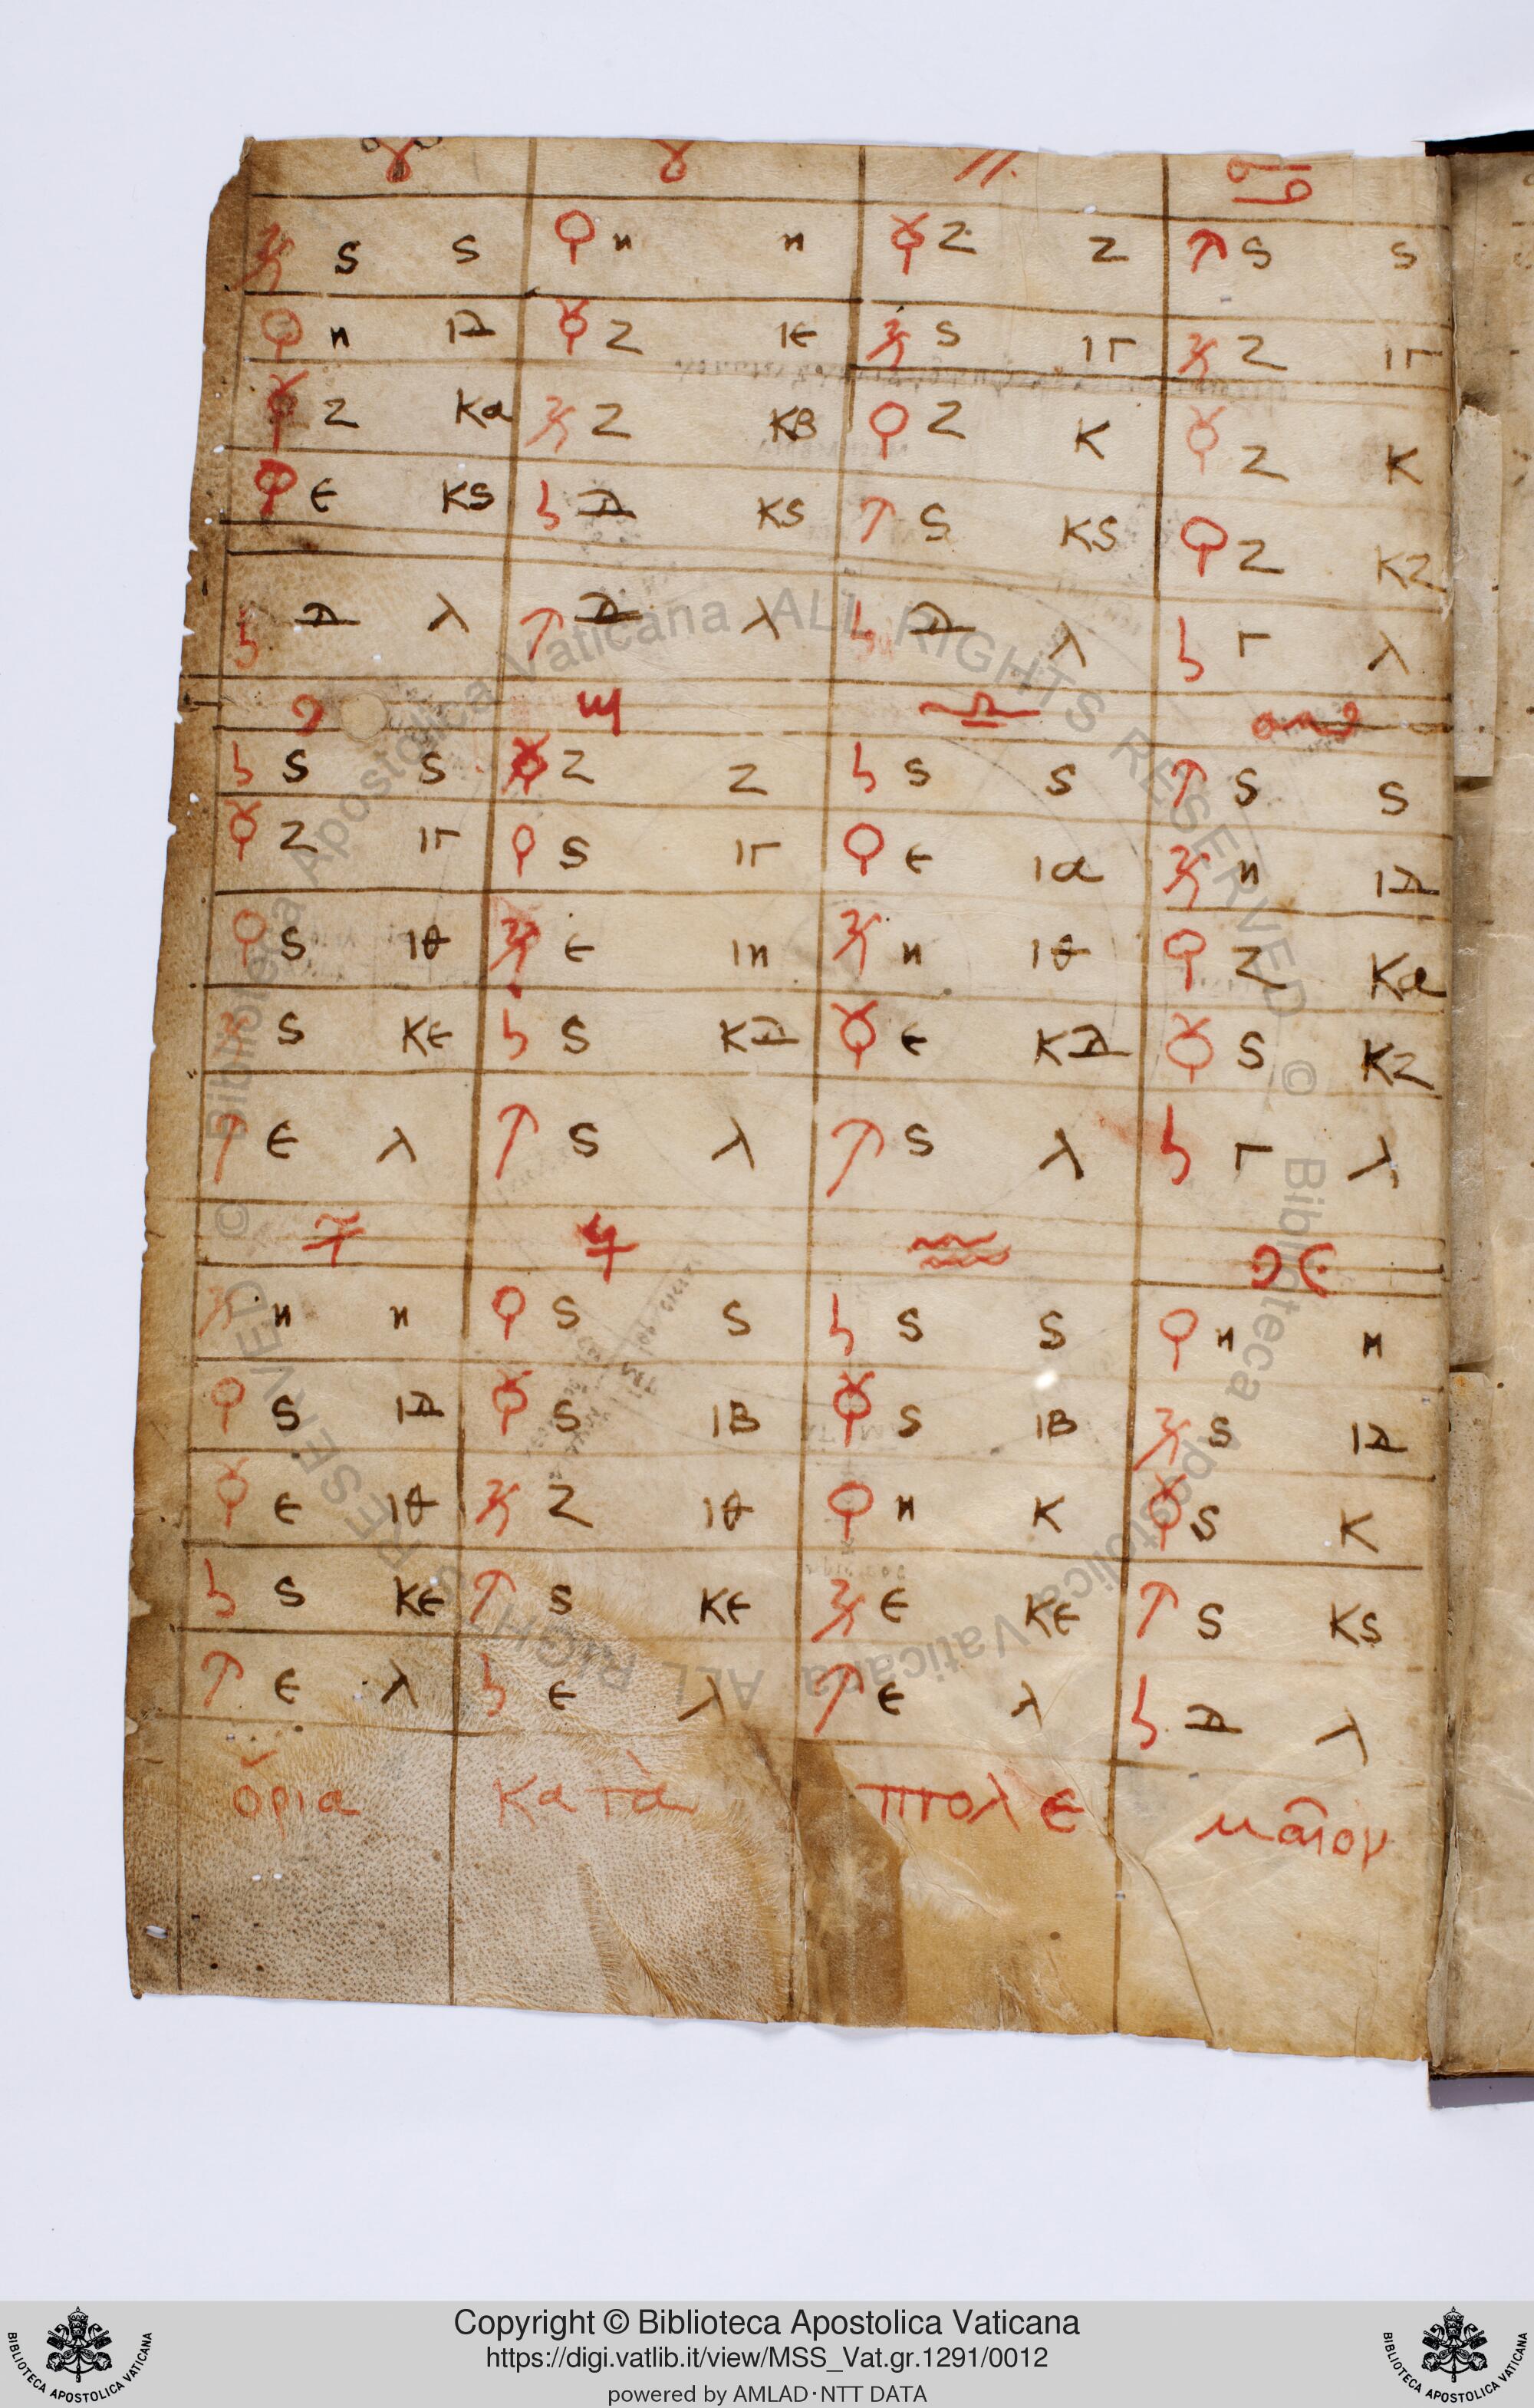 ♈ ♉ ♊ ♋
♃ ς ς ♀ η η ☿ ζ ζ ♂ ς ς
♀ η ιδ ☿ ζ ιε ♃ ς ιγ ♃ ζ ιγ
☿ ζ κα ♃ ζ κβ ♀ ζ κ ☿ ζ κ
♀ ε κς ♄ δ κς ♂ ς κς ♀ ζ κζ
♄ δ λ ♂ δ λ ♄ δ λ ♄ γ λ
♌ ♍ ♎ ♏
♄ ς ς ☿ ζ ζ ♄ ς ς ♂ ς ς
☿ ζ ιγ ♀ ς ιγ ♀ ε ια ♃ η ιδ
♀ ς ιθ ♃ ε ιη ♃ η ιθ ♀ ζ κα
♃ ς κε ♄ ς κδ ☿ ε κδ ☿ ς κζ
♂ ε λ ♂ ς λ ♂ ς λ ♄ γ λ
♐ ♑ ♒ ♓
♃ η η ♀ ς ς ♄ ς ς ♀ η η
♀ ς ιδ ☿ ς ιβ ☿ ς ιβ ♃ ς ιδ
☿ ε ιθ ♃ ζ ιθ ♀ η κ ☿ ς κ
♄ ς κε ♂ ς κε ♃ ε κε ♂ ς κς
♂ ε λ ♄ ε λ ♂ ε λ ♄ δ λ
ὅρια κατὰ πτολε μαῖον
Copyright © Biblioteca Apostolica Vaticana
https://digi.vatlib.it/view/MSS_Vat.gr.1291/0012
powered by AMLAD·NTT DATA
BIBLIOTECA APOSTOLICA VATICANA
BIBLIOTECA APOSTOLICA VATICANA
© Biblioteca Apostolica Vaticana ALL RIGHTS RESERVED © Biblioteca Apostolica Vaticana ALL RIGHTS RESERVED